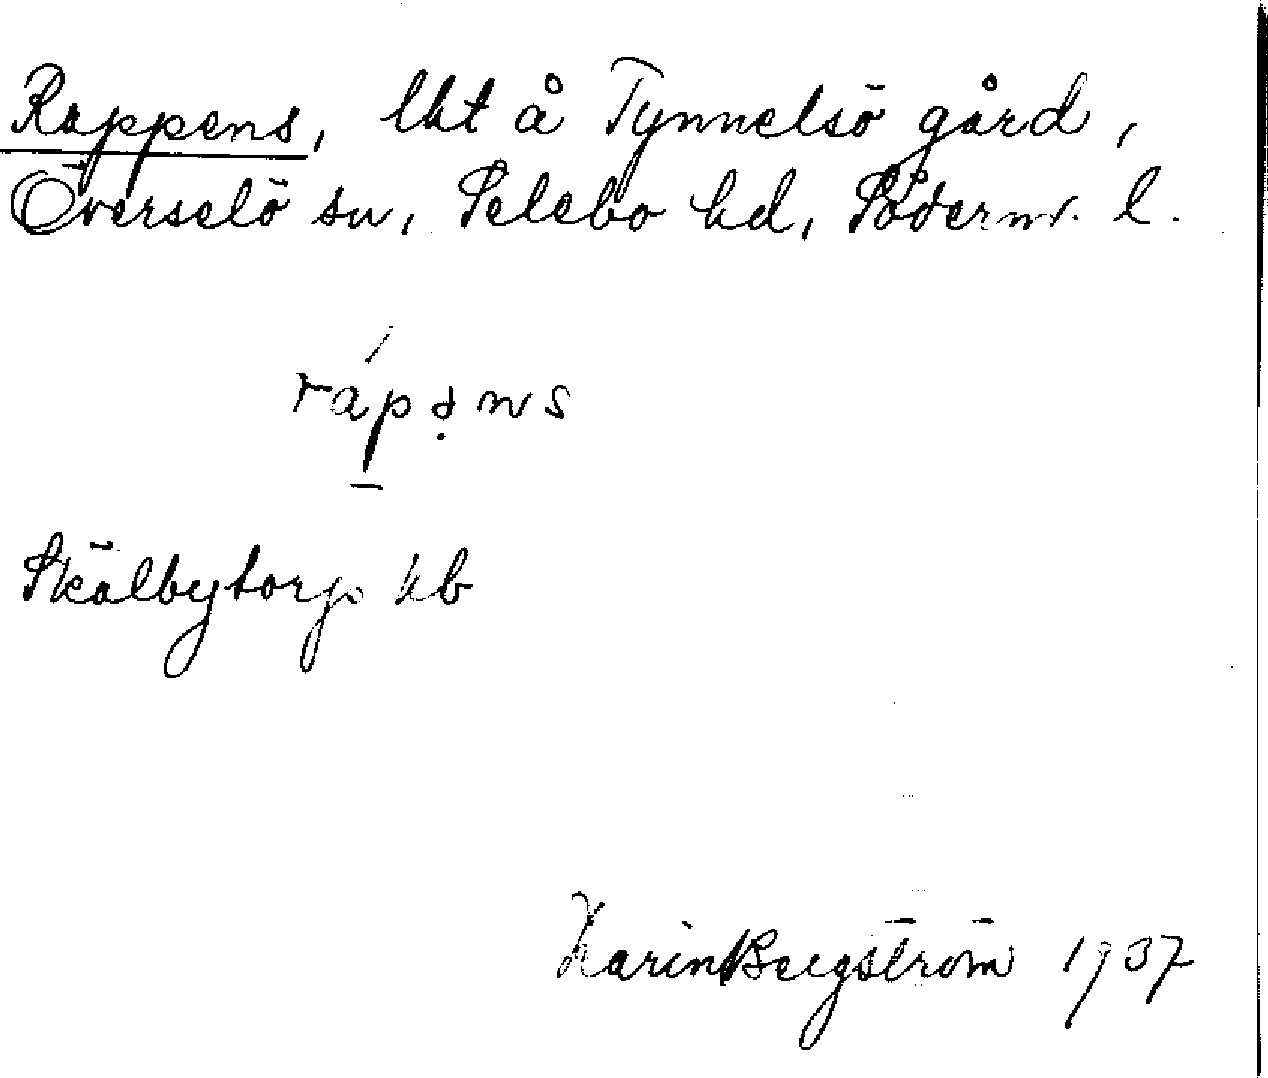 Rappens, lht å Tynnelsö gård,
Överselö sn, Selebo hd, Söderm. l.
rápəns
Skälbytorp kb
Karin Bergström 1937